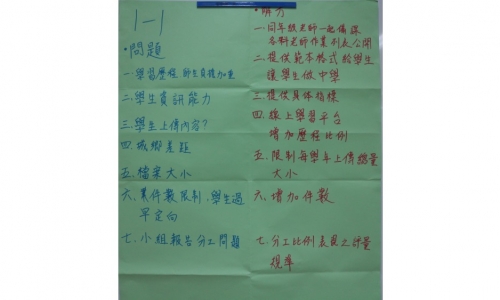 1-1
·問題
一學習歷程 師生負擔加重
二.學生資訊能力
三.學生上傳內容?
四.城鄉差距
五.檔案大小
六.業件數限制,學生過
早定向
七.小組報告分工問題
·解方
一.同年級老師一起備課
各科老師作業列表公開
二.提供範本格式給學生
讓學生做中學
三.提供具體指標
四.線上學習平台
增加歷程比例
五.限制每學年上傳總量
大小
六.增加件數
七.分工比例表與之評量
規準